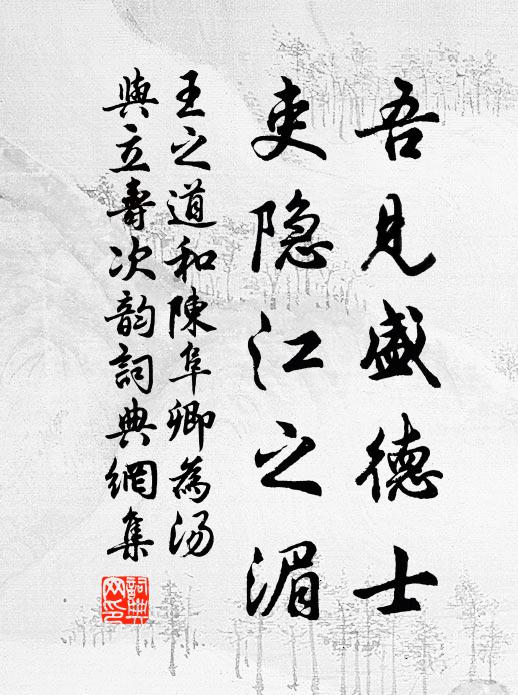 吾見盛德士
吏隐江之湄
王之道和陳阜卿為湯
與立壽次韵詞典網集